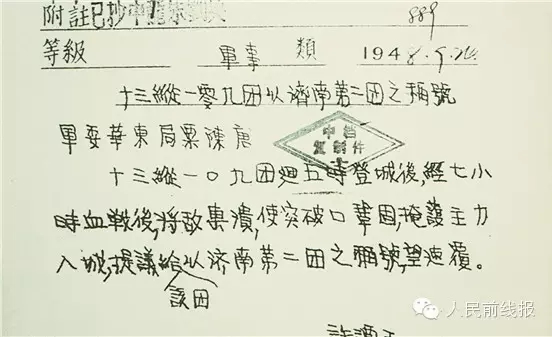 附註已抄中
889
等級 軍事類 1948.9.
十三縱一零九团以濟南第二团之稱號
軍委華東局粟陳唐
中档
复制件
十三縱一〇九团廻五時登城後,經七小
時血戰後,将敵擊潰,使突破口鞏固,掩護主力
入城,提議給以济南第二团之稱號,望速覆。
該团
許譚王
人民前线报